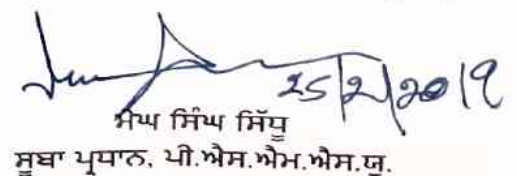 25/2/2019
ਮੇਘ ਸਿੰਘ ਸਿੱਧੂ
ਸੂਬਾ ਪ੍ਰਧਾਨ, ਪੀ.ਐਸ.ਐਮ.ਐਸ.ਯੂ.